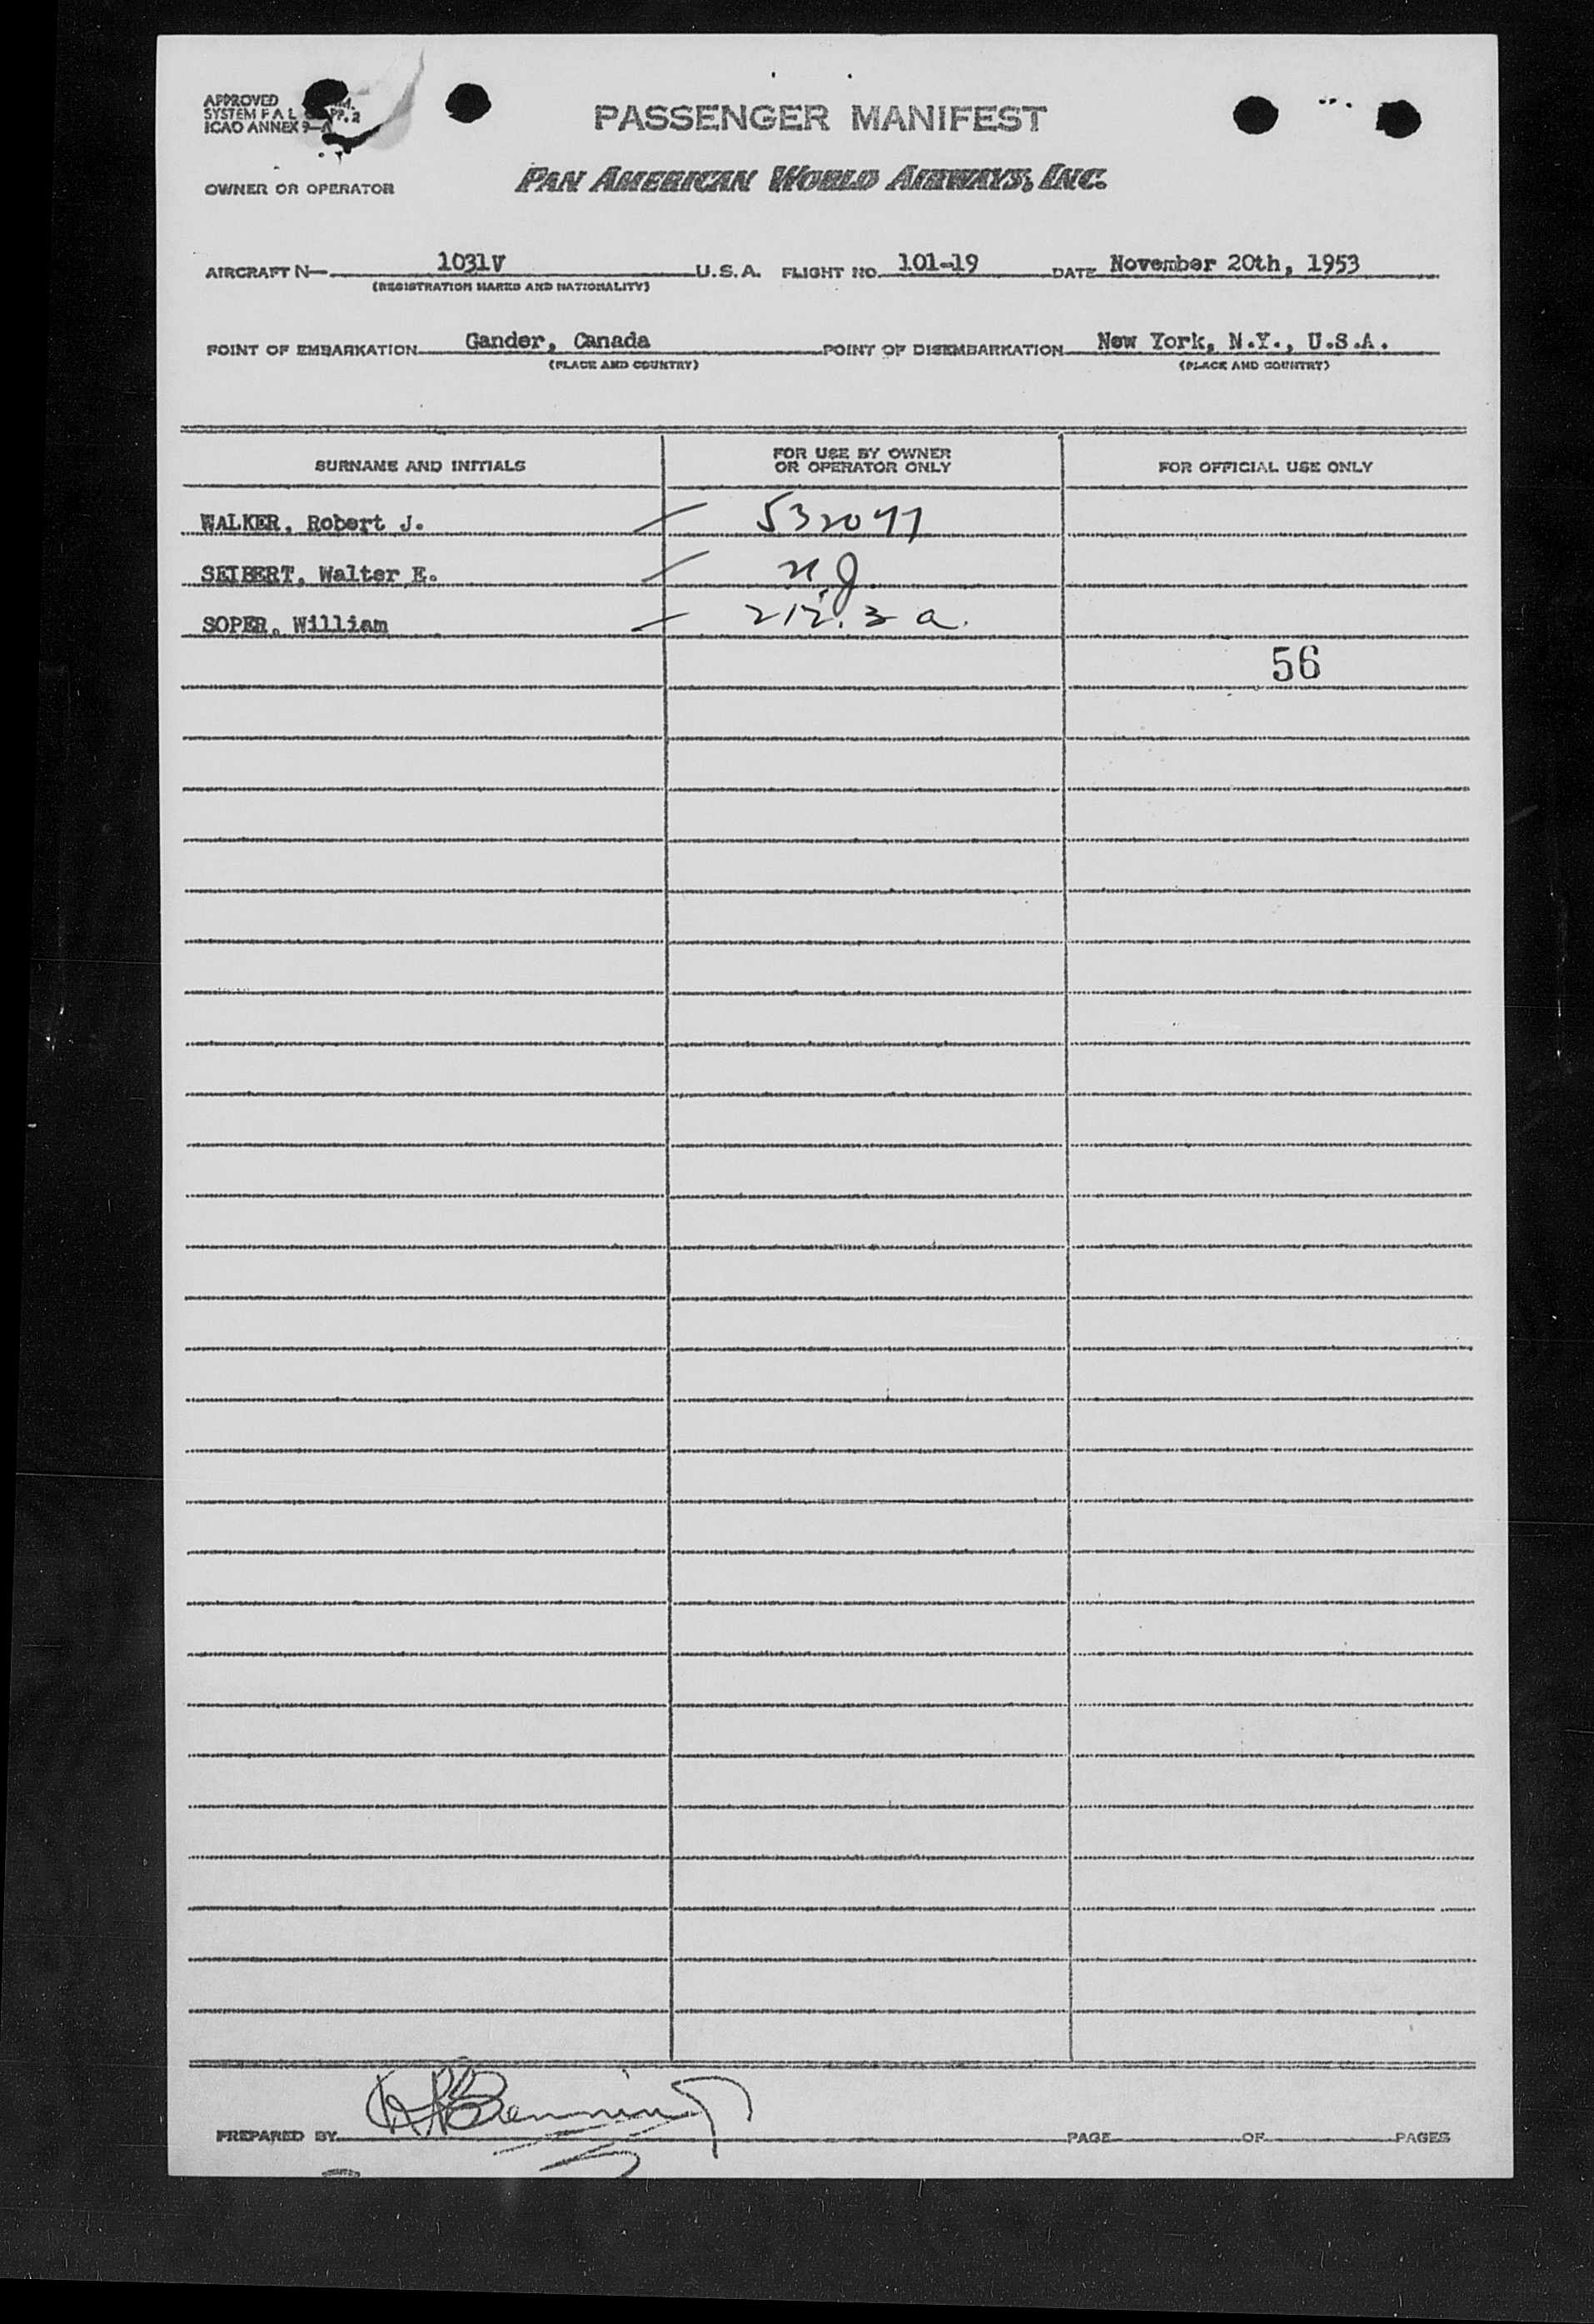 APPROVED
SYSTEM F A L
ICAO ANNEX 9-A
PP. 2
PASSENGER MANIFEST
OWNER OR OPERATOR PAN AMERICAN WORLD AIRWAYS, INC.
AIRCRAFT N- 1031V U.S.A. FLIGHT NO. 101-19 DATE November 20th, 1953
(REGISTRATION MARKS AND NATIONALITY)
POINT OF EMBARKATION Gander, Canada POINT OF DISEMBARKATION New York, N.Y., U.S.A.
(PLACE AND COUNTRY) (PLACE AND COUNTRY)
SURNAME AND INITIALS FOR USE BY OWNER OR OPERATOR ONLY FOR OFFICIAL USE ONLY
WALKER, Robert J. 532077
SEIBERT, Walter E. n.J.
SOPER, William 212.3 a.
56
PREPARED BY PAGE OF PAGES